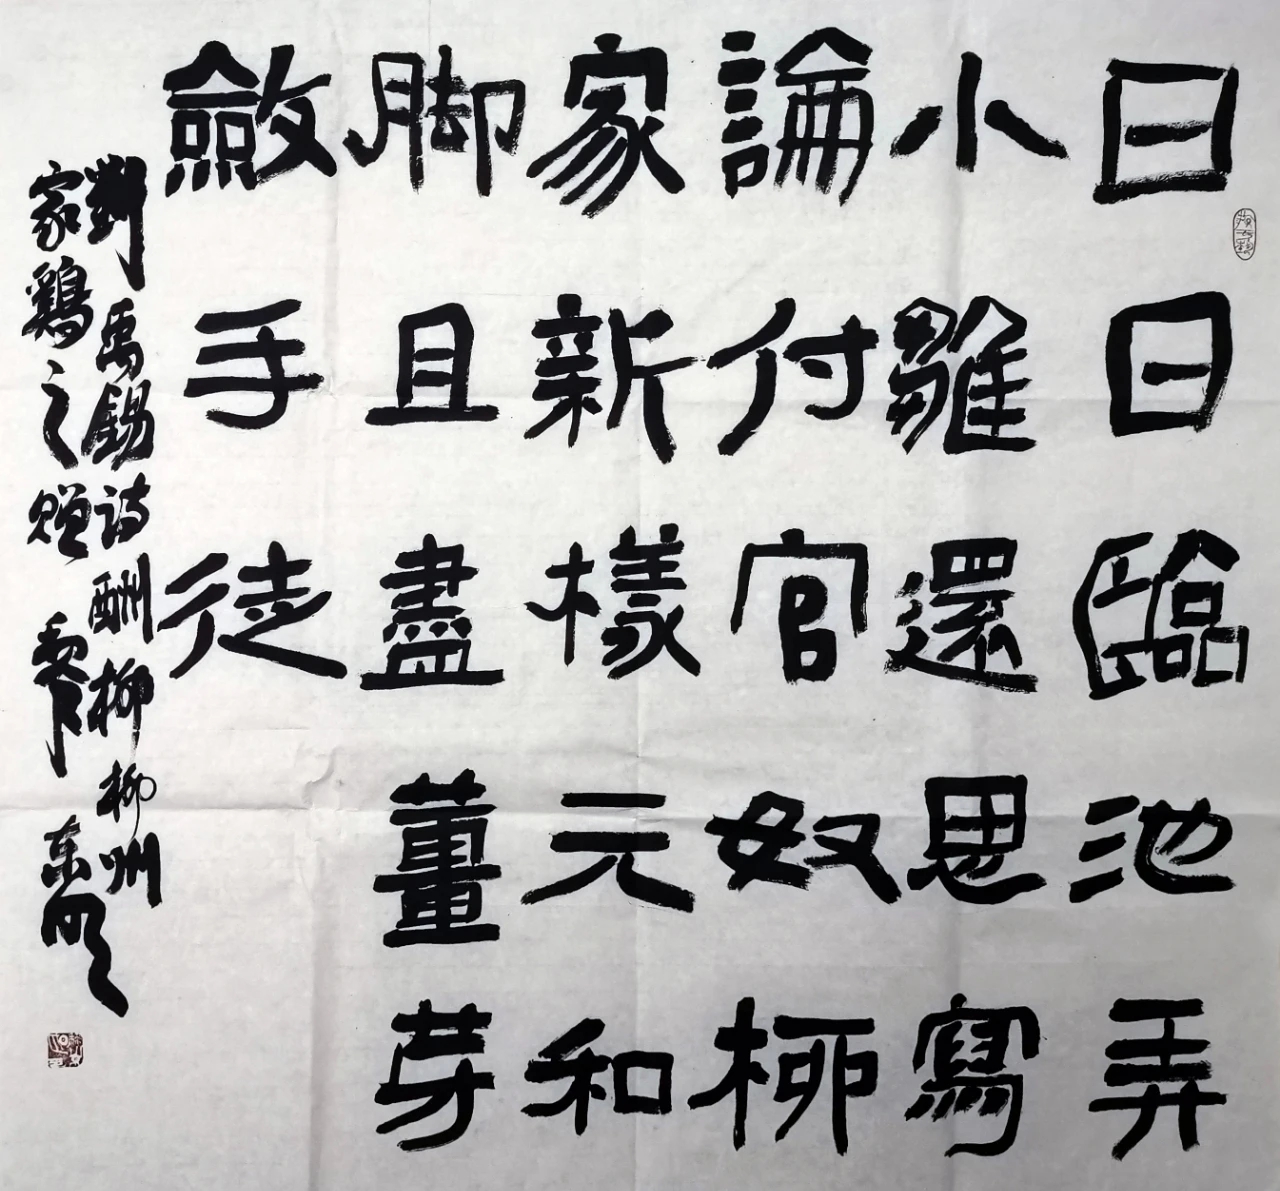 日日臨池弄
小雛還思寫
論付官奴柳
家新樣元和
脚且盡薑芽
斂手徒
劉禹錫诗酬柳柳州
家鷄之赠 东明